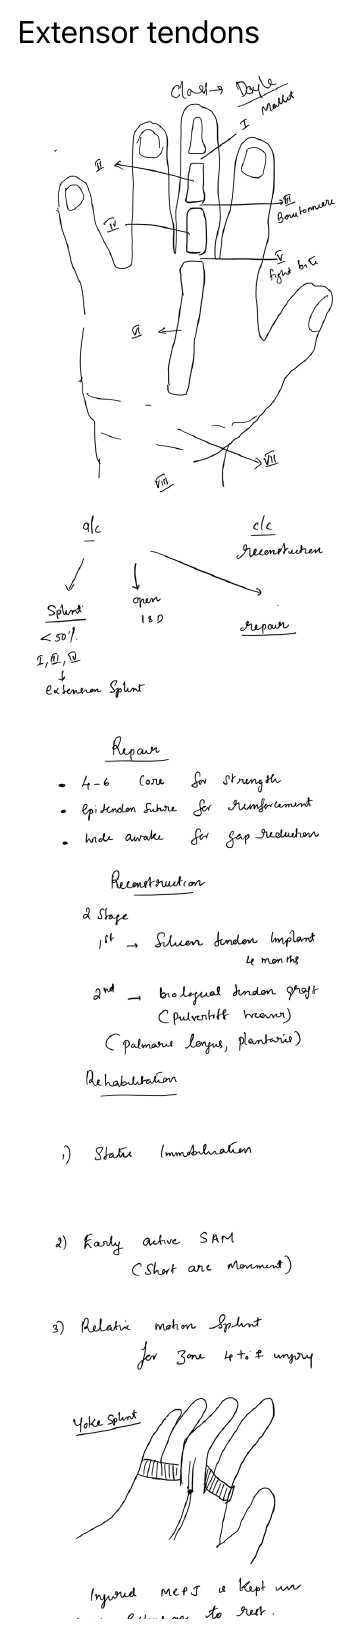 Extensor tendons
Class → Doyle
I
Mallet
II
III
Boutonniere
IV
V
fight bite
VI
VII
VIII
a/c
c/c
reconstruction
Splint
<50%
I, III, V
extension Splint
open
I & D
repair
Repair
• 4-6 Core for strength
• Epitendon suture for reinforcement
• wide awake for gap reduction
Reconstruction
2 Stage
1st → Silicon tendon Implant
4 months
2nd → biological tendon graft
(pulvertaft weave)
(palmaris longus, plantaris)
Rehabilitation
1) Static Immobilisation
2) Early active SAM
(Short arc Movement)
3) Relative motion Splint
for Zone 4 to 7 injury
Yoke Splint
Injured MCPJ is kept in
to rest.